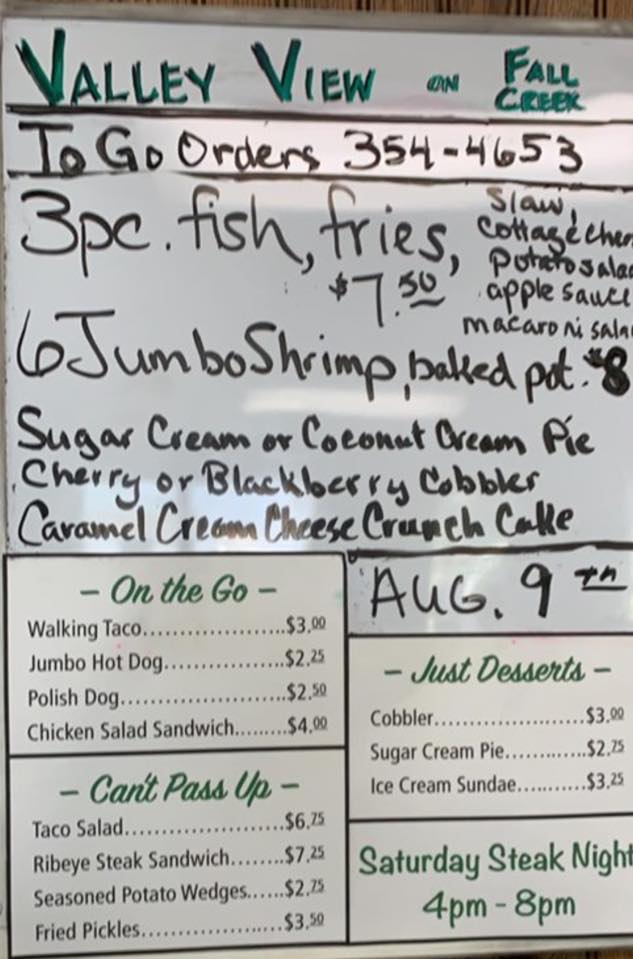 VALLEY VIEW ON FALL CREEK
To Go Orders 354-4653
3pc. fish, fries, $7.50
Slaw,
Cottage chee
Potato salad
apple sauce
macaroni salad
6 Jumbo Shrimp, baked pot. $8
Sugar Cream or Coconut Cream Pie
Cherry or Blackberry Cobbler
Caramel Cream Cheese Crunch Cake
AUG. 9th
- On the Go -
Walking Taco.....................$3.00
Jumbo Hot Dog..................$2.25
Polish Dog.........................$2.50
Chicken Salad Sandwich.........$4.00
- Can't Pass Up -
Taco Salad........................$6.75
Ribeye Steak Sandwich........$7.25
Seasoned Potato Wedges......$2.75
Fried Pickles.....................$3.50
- Just Desserts -
Cobbler......................$3.00
Sugar Cream Pie............$2.75
Ice Cream Sundae..........$3.25
Saturday Steak Night
4pm - 8pm